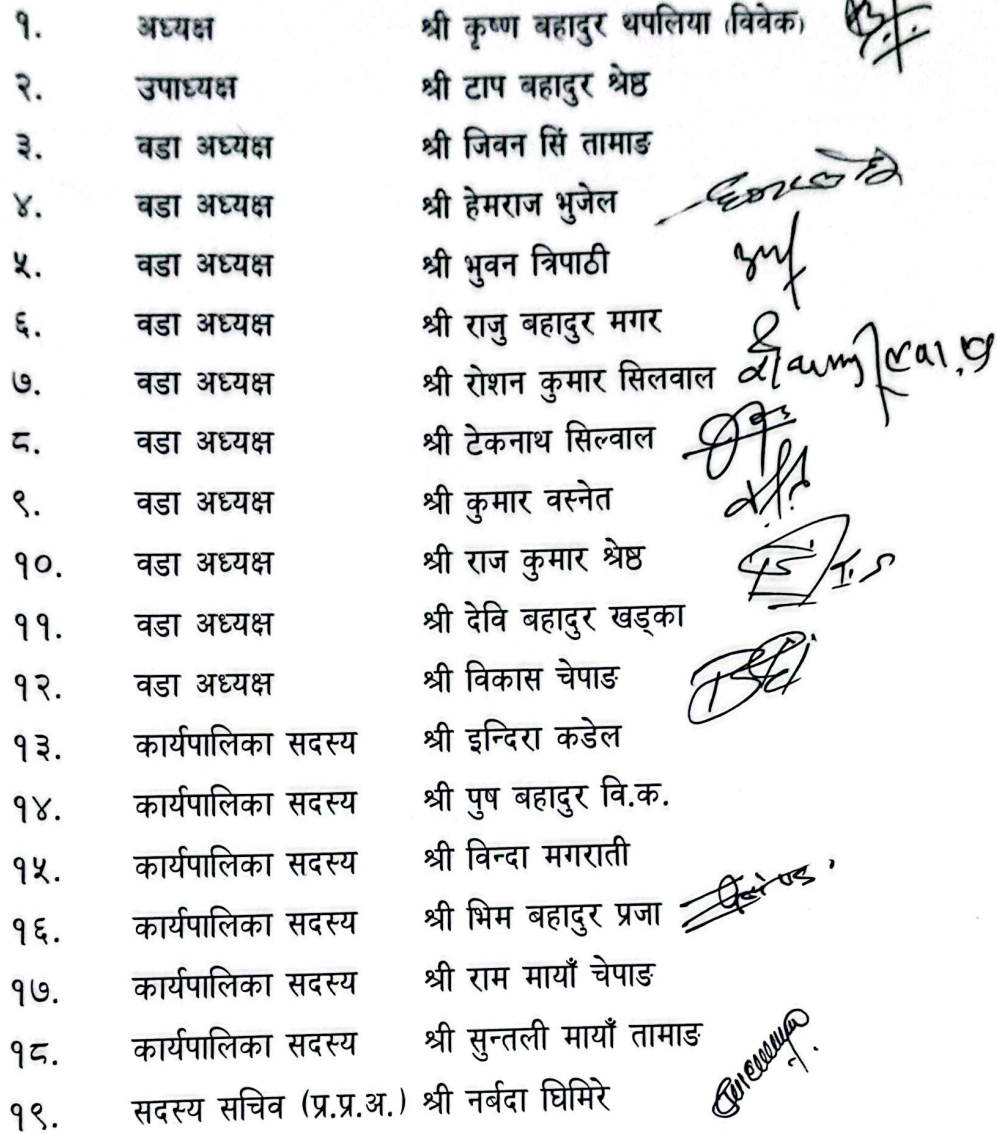 १. अध्यक्ष श्री कृष्ण बहादुर थपलिया (विवेक)
२. उपाध्यक्ष श्री टाप बहादुर श्रेष्ठ
३. वडा अध्यक्ष श्री जिवन सिं तामाङ
४. वडा अध्यक्ष श्री हेमराज भुजेल
५. वडा अध्यक्ष श्री भुवन त्रिपाठी
६. वडा अध्यक्ष श्री राजु बहादुर मगर
७. वडा अध्यक्ष श्री रोशन कुमार सिलवाल
८. वडा अध्यक्ष श्री टेकनाथ सिल्वाल
९. वडा अध्यक्ष श्री कुमार वस्नेत
१०. वडा अध्यक्ष श्री राज कुमार श्रेष्ठ
११. वडा अध्यक्ष श्री देवि बहादुर खड्का
१२. वडा अध्यक्ष श्री विकास चेपाङ
१३. कार्यपालिका सदस्य श्री इन्दिरा कडेल
१४. कार्यपालिका सदस्य श्री पुष बहादुर वि.क.
१५. कार्यपालिका सदस्य श्री विन्दा मगराती
१६. कार्यपालिका सदस्य श्री भिम बहादुर प्रजा
१७. कार्यपालिका सदस्य श्री राम मायाँ चेपाङ
१८. कार्यपालिका सदस्य श्री सुन्तली मायाँ तामाङ
१९. सदस्य सचिव (प्र.प्र.अ.) श्री नर्बदा घिमिरे